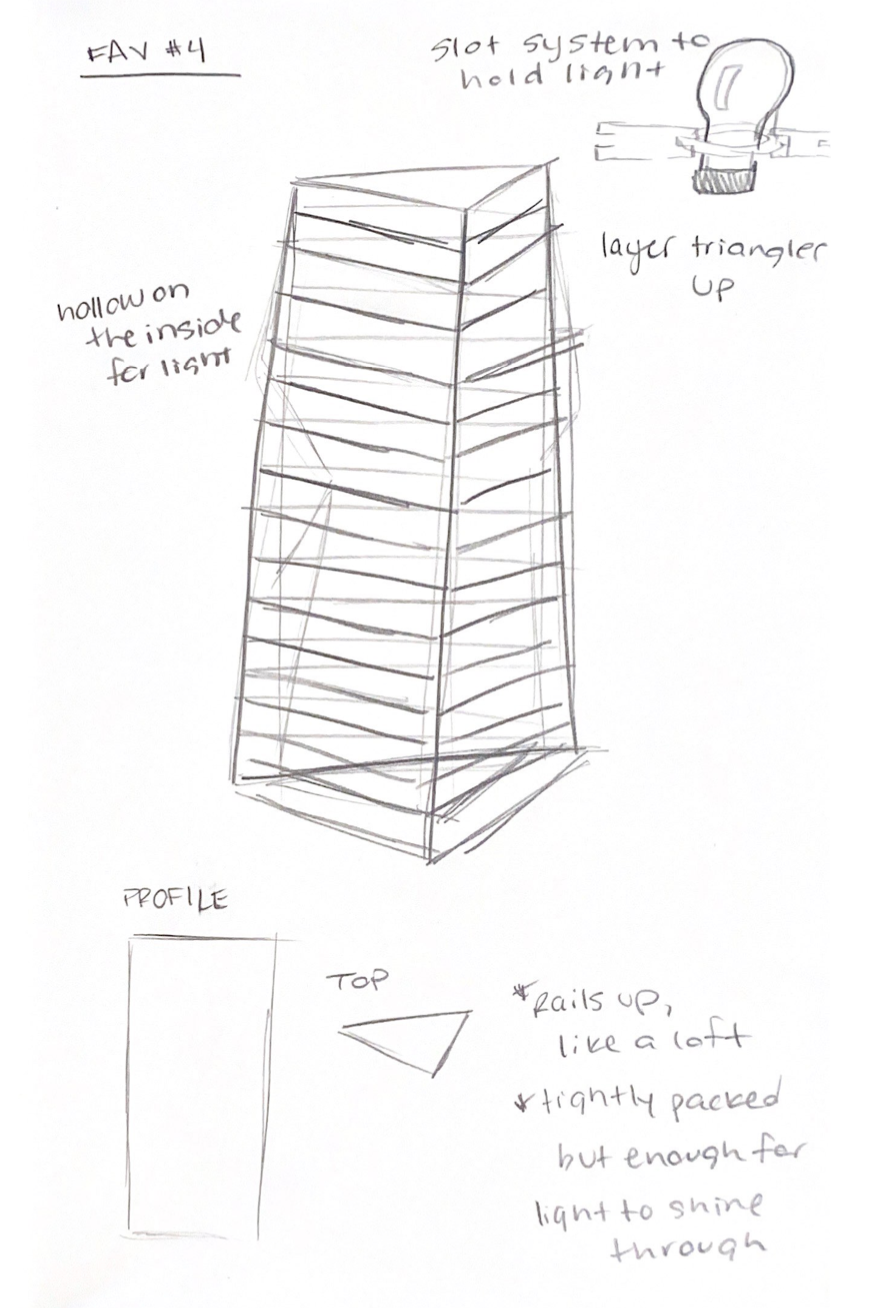 FAV #4
slot system to
hold light
layer triangler
UP
hollow on
the inside
for light
PROFILE
TOP
*Rails up,
like a loft
*tightly packed
but enough for
light to shine
through